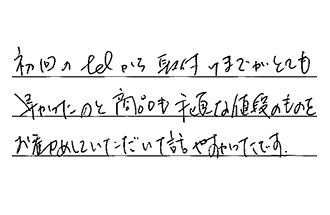 初回のtelから取付けまでがとても
早かったのと商品も手頃な値段のものを
お薦めしていただいて話やすかったです.